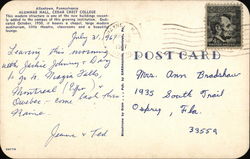 Allentown, Pennsylvania
ALUMNAE HALL, CEDAR CREST COLLEGE
This modern structure is one of the new buildings recently
added to the campus of this growing institution. Dedi-
cated October, 1950, it houses a chapel, large
auditorium, little theatre, classrooms and a
lounge.
July 21, 1967
Leaving this morning
with Jackie Johnny & Dory
to go to Niagra Falls,
Montreal (Expo) &
Quebec - come back thru
Maine -
Jeanne & Ted
POST CARD
Mrs. Ann Bradshaw
1935 South Trail
Osprey, Fla.
33559